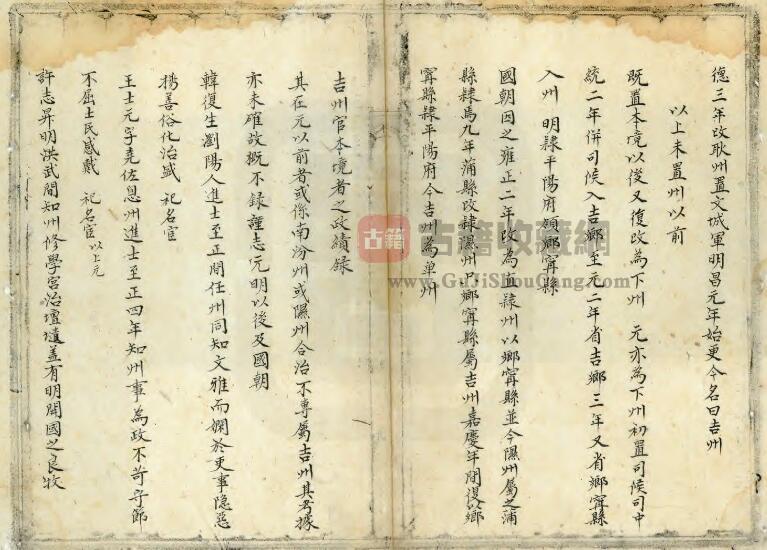 德三年改耿州置文城軍明昌元年始更今名曰吉州
以上未置州以前
既置本境以後又復改為下州 元亦為下州初置司候司中
統二年併司候入吉鄉至元二年省吉鄉三年又省鄉寧縣
入州 明隸平陽府領鄉寧縣
國朝因之雍正二年改為直隸州以鄉寧縣並今隰州屬之蒲
縣隸焉九年蒲縣改隸隰州只鄉寧縣屬吉州嘉慶年間復以鄉
寧縣隸平陽府今吉州為單州
吉州官本境者之政績錄
其在元以前者或係南汾州或隰州合治不專屬吉州其考據
亦未確故概不錄謹志元明以後及國朝
韓復生瀏陽人進士至正間任州同知文雅而嫻於吏事隱惡
揚善俗化治盛 祀名宦
王士元字堯佐恩州進士至正四年知州事為政不苛守節
不屈士民感戴 祀名宦以上元
許志昇明洪武間知州修學宮治壇壝蓋有明開國之良牧
古籍
古籍收藏網
www.GuJiShouCang.com